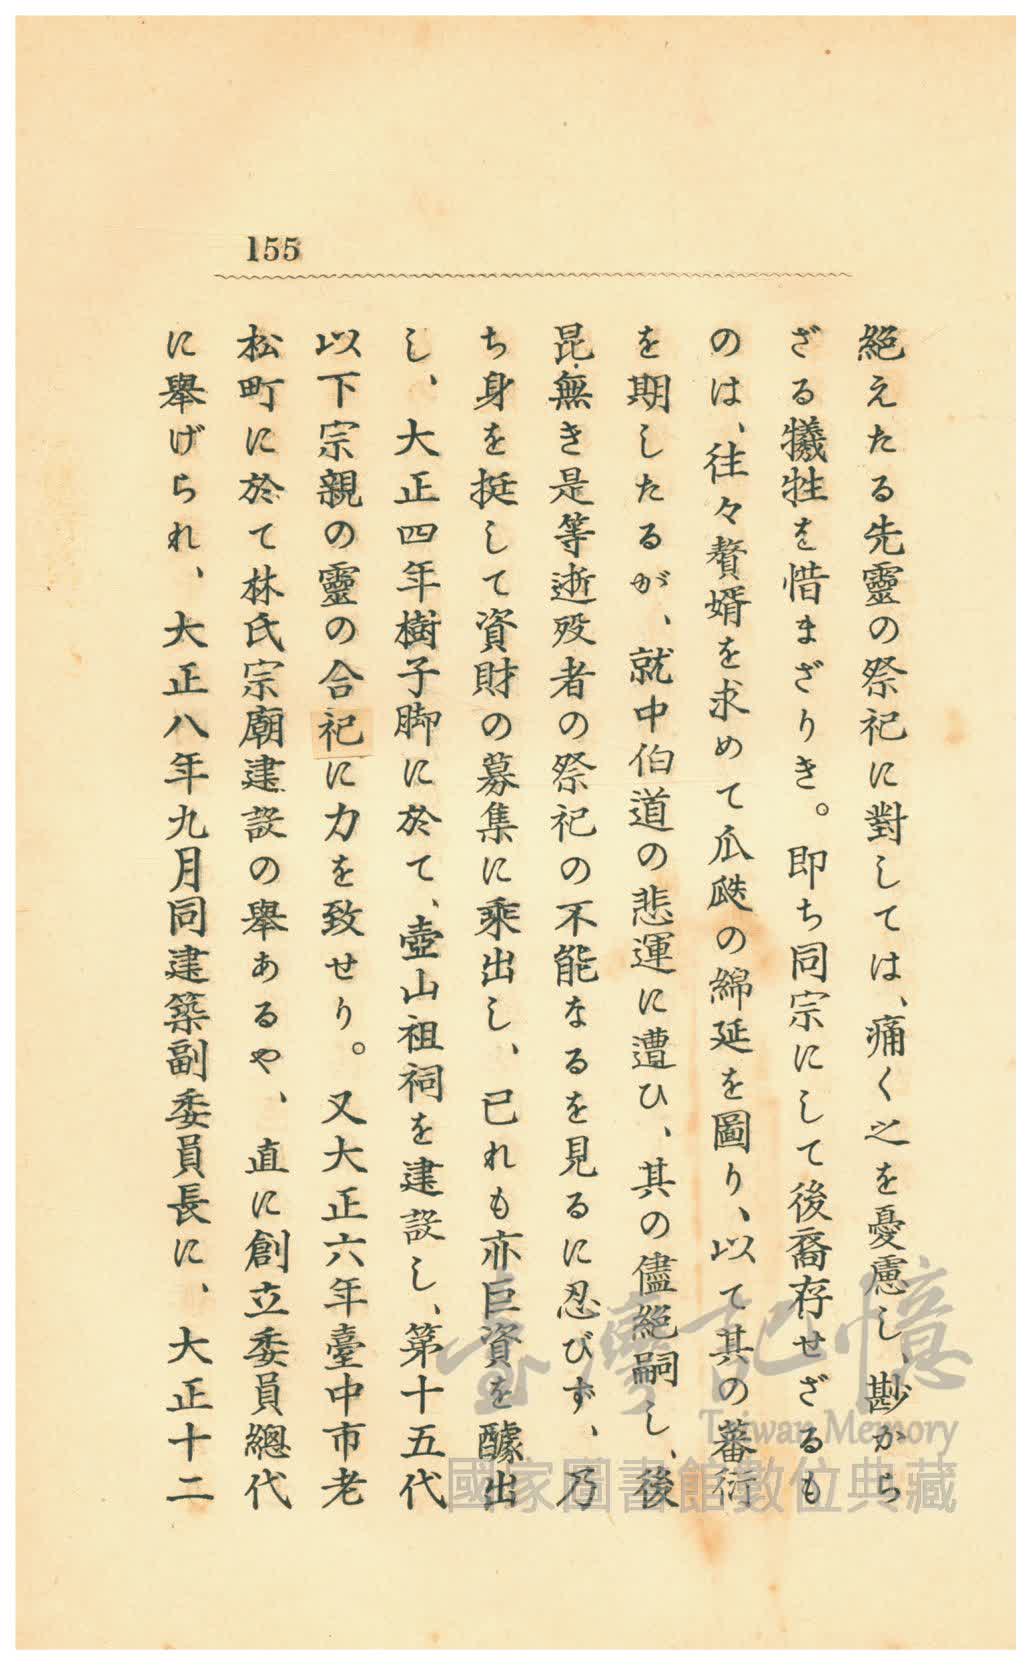 155
絕えたる先靈の祭祀に對しては、痛く之を憂慮し、尠から
ざる犧牲を惜まざりき。即ち同宗にして後裔存せざるも
のは、往々贅婿を求めて瓜瓞の綿延を圖り、以て其の蕃衍
を期したるが、就中伯道の悲運に遭ひ、其の儘絕嗣し、後
昆無き是等逝歿者の祭祀の不能なるを見るに忍びず、乃
ち身を挺して資財の募集に乘出し、已れも亦巨資を醵出
し、大正四年樹子脚に於て、壺山祖祠を建設し、第十五代
以下宗親の靈の合祀に力を致せり。又大正六年臺中市老
松町に於て林氏宗廟建設の舉あるや、直に創立委員總代
に舉げられ、大正八年九月同建築副委員長に、大正十二
臺灣記憶
Taiwan Memory
國家圖書館數位典藏